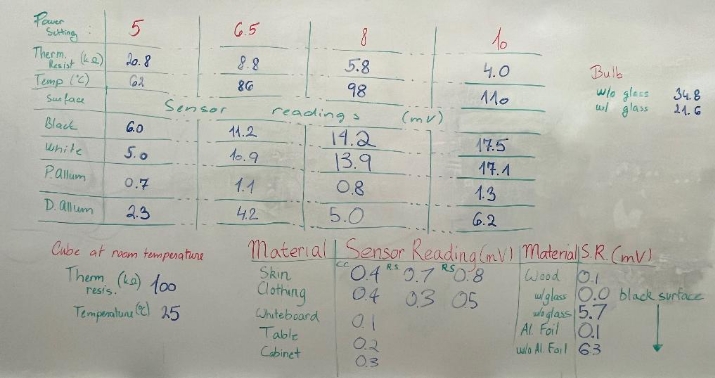 Power Setting: 5 6.5 8 10
Therm. Resist (kΩ) 20.8 8.8 5.8 4.0
Temp (°C) 62 86 98 110
Surface Sensor readings (mV)
Black 6.0 11.2 14.2 17.5
White 5.0 10.9 13.9 17.1
P.allum 0.7 1.1 0.8 1.3
D.allum 2.3 4.2 5.0 6.2
Bulb
w/o glass 34.8
w/ glass 21.6
Cube at room temperature
Therm resis. (kΩ) 100
Temperature (°C) 25
Material Sensor Reading (mV)
Skin CC 0.4 RS 0.7 RS 0.8
Clothing 0.4 0.3 05
Whiteboard 0.1
Table 0.2
Cabinet 0.3
Material S.R. (mV)
Wood 0.1
w/glass 0.0 black surface
w/o glass 5.7
Al Foil 0.1
w/o Al. Foil 63